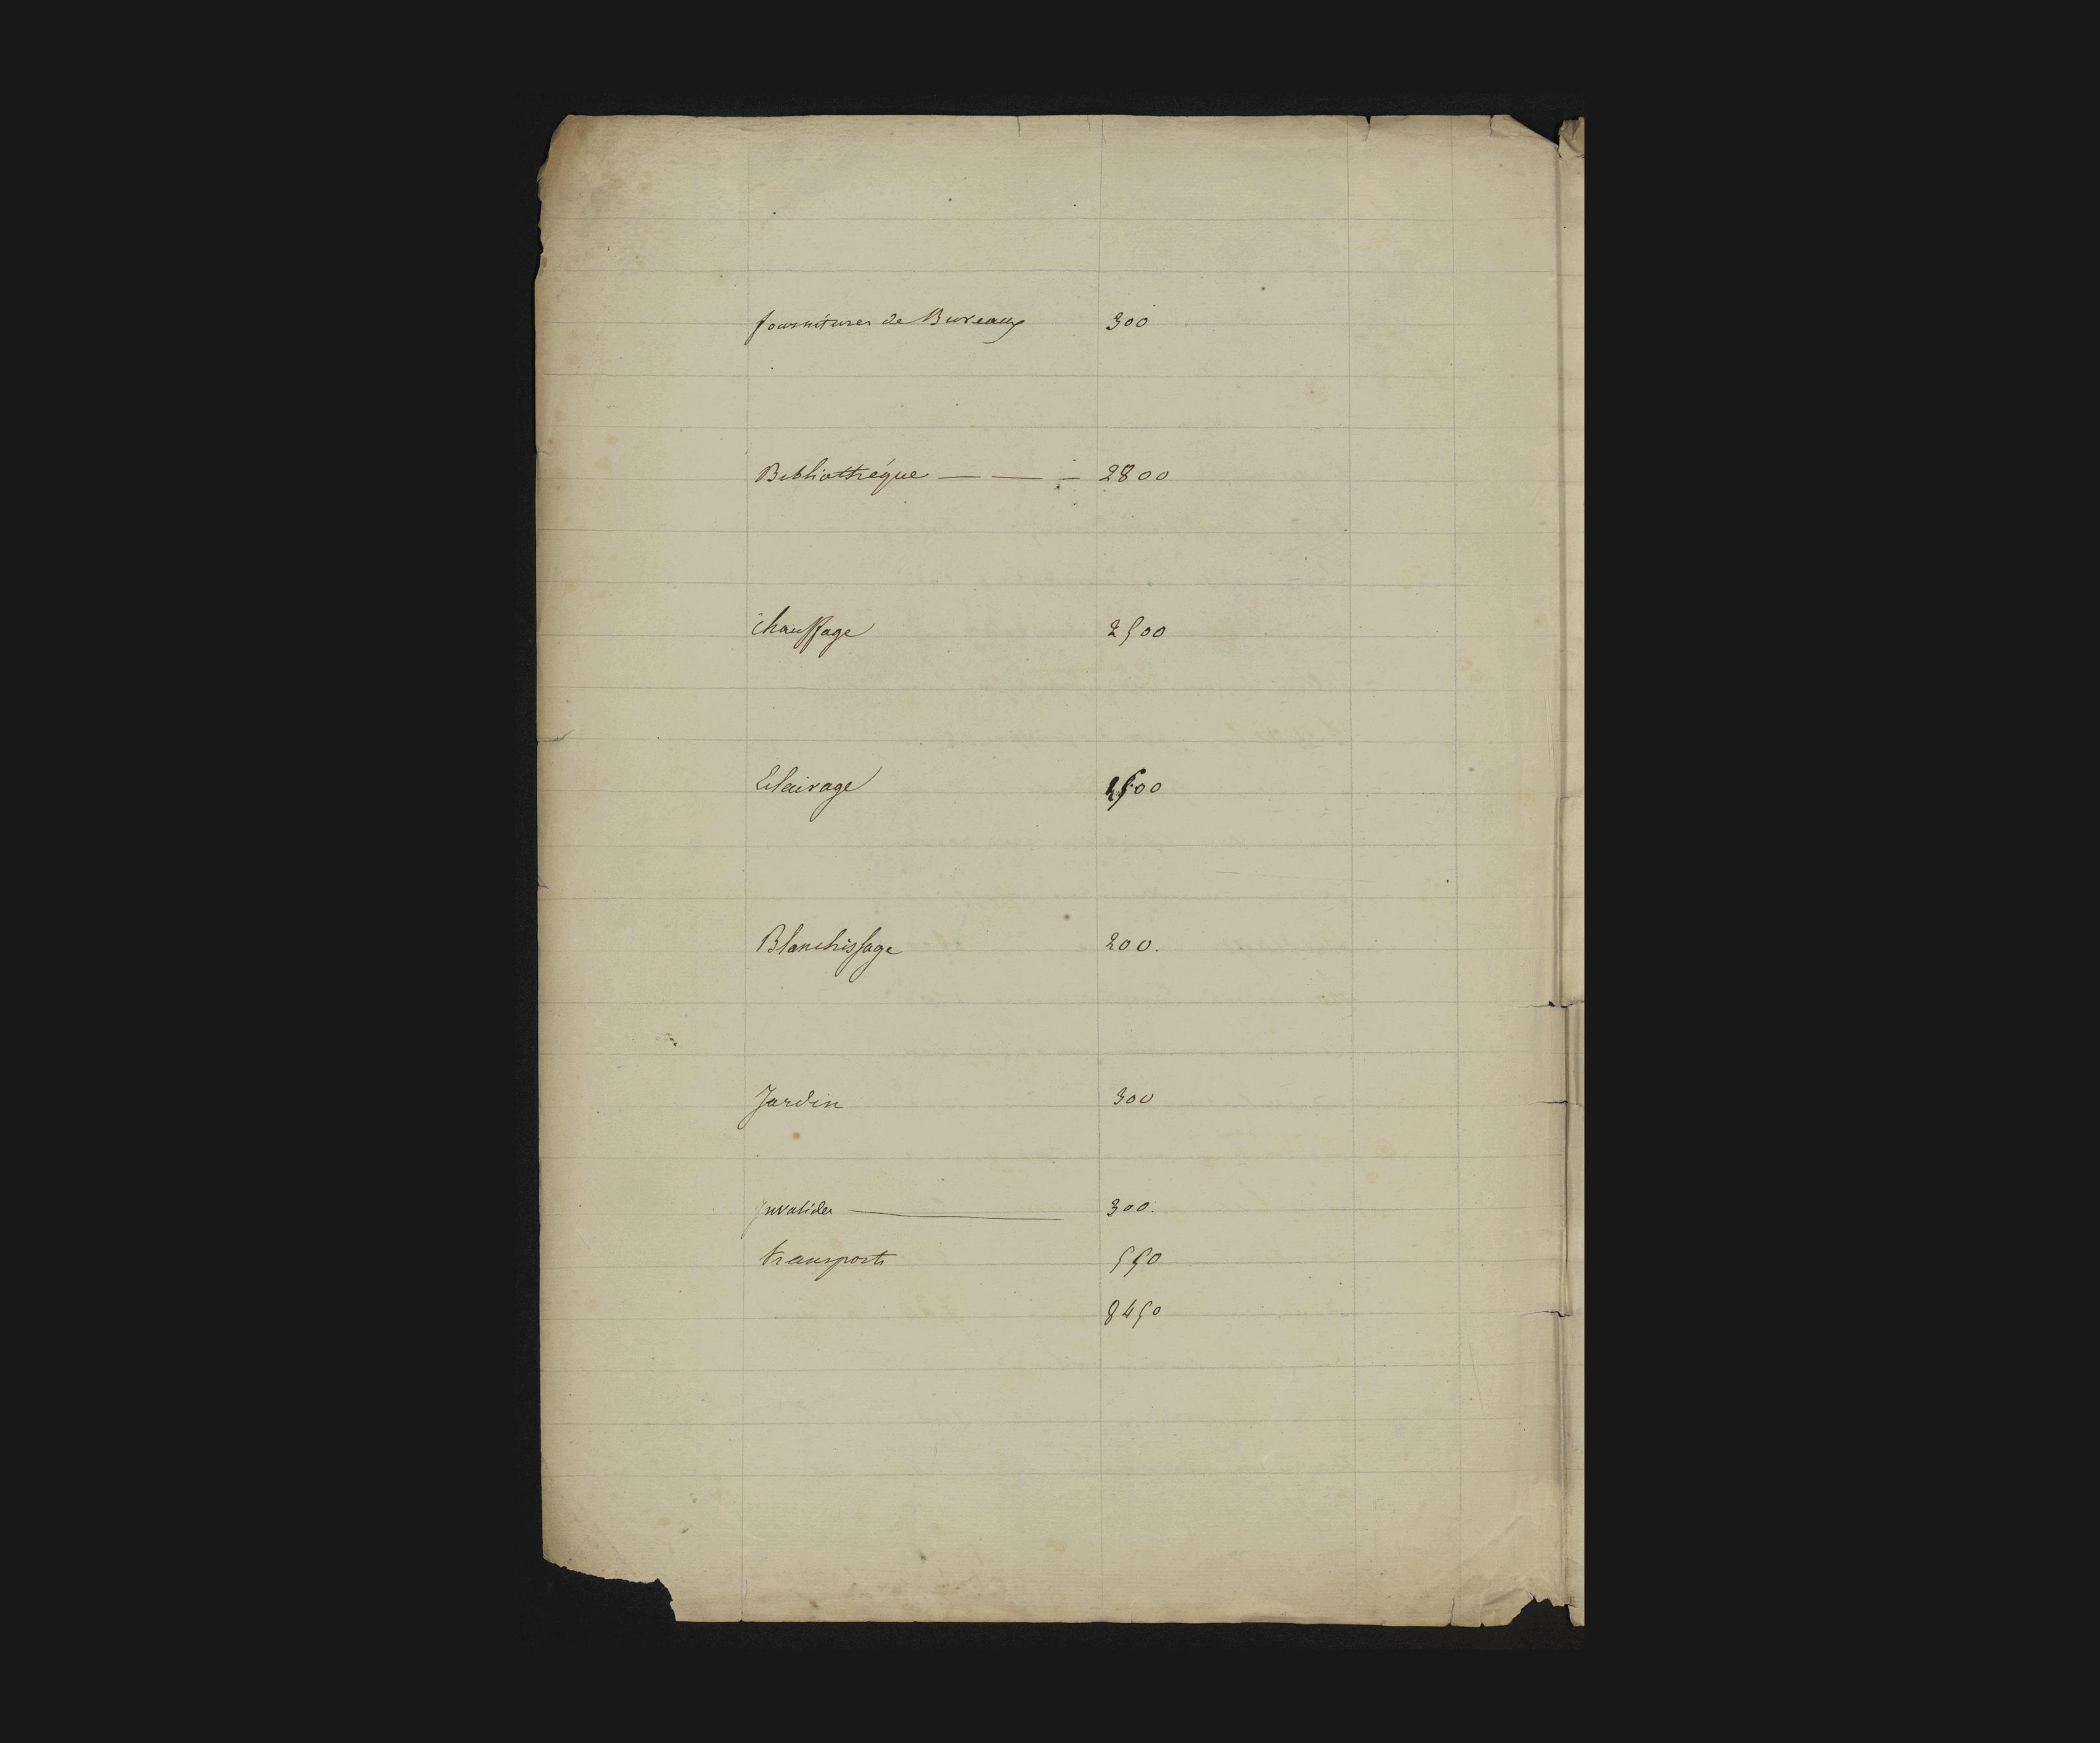 fournitures de Bureaux 300
Bibliothéque — — — 2800
Chauffage 2500
Eclairage 1500
Blanchissage 200.
Jardin 300
invalides — 300.
transports 550
8450